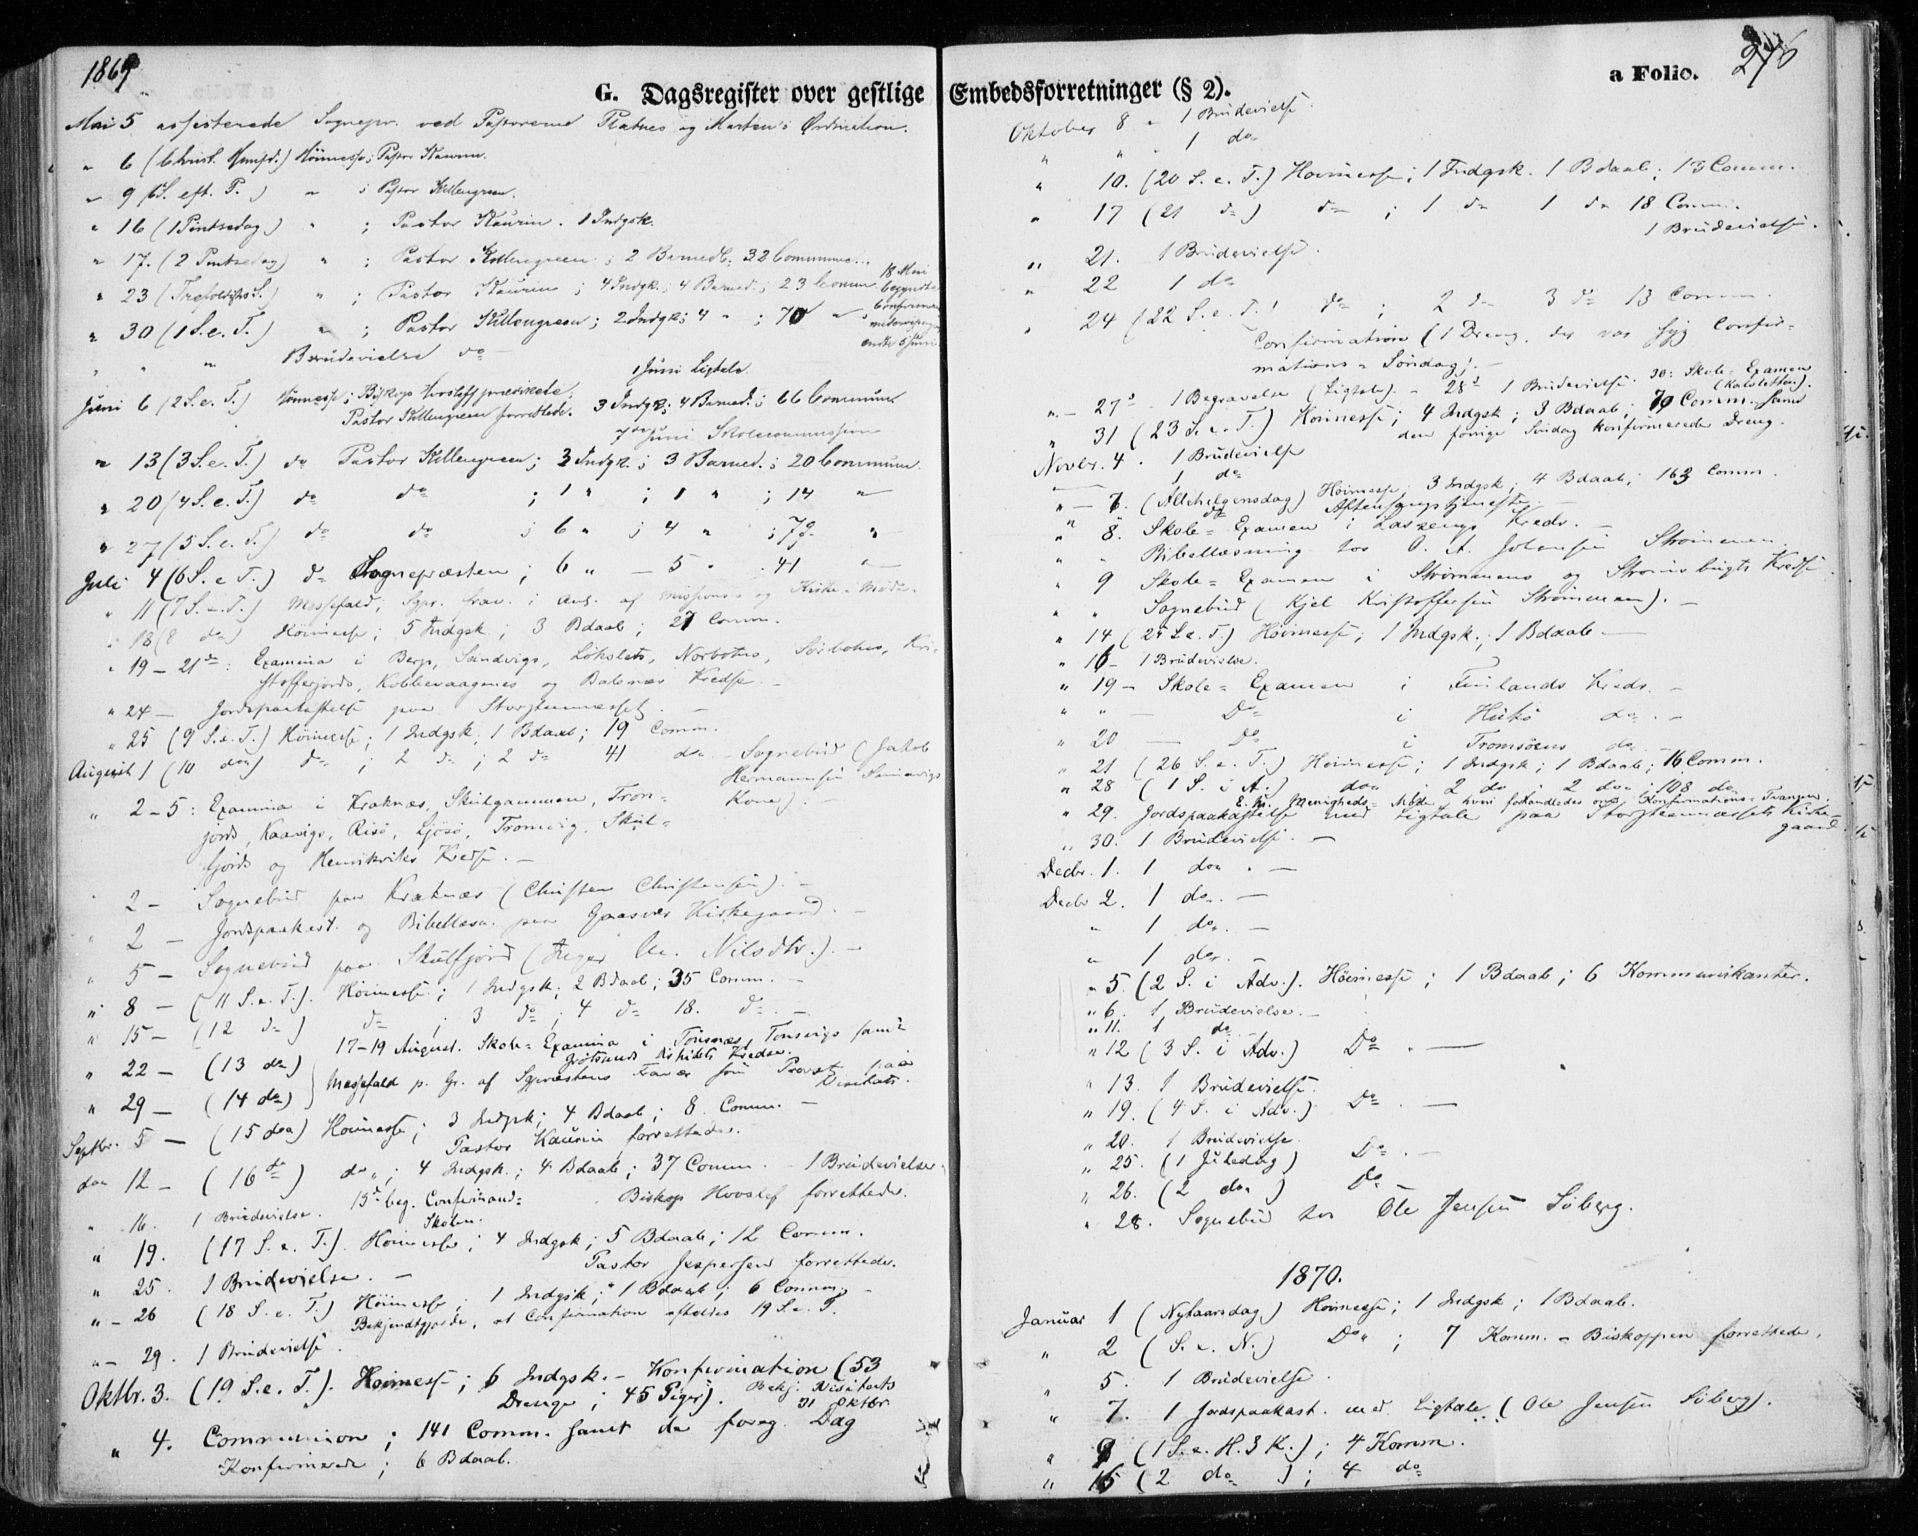 1869
G. Dagsregister over gestlige Embedsforretninger (§ 2).
a Folio. 276
Mai 5 assisterede Sognepr. ved Pastorerne og Ordination.
" 6 (Christ. Hmfd.) Höimesse; Pastor Kaurin.
" 9 (6 S. eft. P.) " ; Pastor Killengreen.
" 16 (1 Pintsedag) " ; Pastor Kaurin. 1 Indgk.
" 17. (2 Pintsedag) " ; Pastor Killengreen; 2 Barnedb. 32 Commun.
" 23 (Trefoldighs S.) " ; Pastor Kaurin; 4 Indgk; 4 Barned.; 23 Comm
18 Mai begyndte
" 30 (1 S. e. T.) " ; Pastor Killengreen; 2 Indgk; 4 " ; 70 "
endte 5 Juni
" " " Brudevielse do
1 Juni Ligtale
Juni 6 (2 S. e. T.) Höimesse; Biskop Hvoslef prædikede,
Pastor Killengreen forrettede. 3 Indgk; 4 Barned.; 66 Commun
7de Juni Skolecommission
" 13 (3 S. e. T.) do Pastor Killengreen; 3 Indgk.; 3 Barned.; 20 Commun.
" 20 (4 S. e. T.) do do ; 1 " ; 1 " ; 14 "
" 27 (5 S. e. T.) do do ; 6 " ; 4 " ; 72 "
Juli 4 (6 S. e. T.) do Sognepræsten; 6 " – 5 " . 41 "
" 11 (7 S. e. T.) Messefald; Sgpr. frav. i Anl. af Missions- og Kirke-Møde.
" 18 (8 do) Höimesse; 5 Indgsk; 3 Bdaab; 27 Comm.
" 19 – 21de: Examina i Berg, Sandvigs, Lökslets, Norbotns, Sörbotns, Kri-
stofferjords, Kobbevaagenes og Balsnes Kredse. –
" 24 – Jordpaakastelse paa Storstennæsset. –
" 25 (9 S. e. T.) Höimesse; 1 Indgsk, 1 Bdaab; 19 Comm.
August 1 (10 do) do ; 2 do ; 2 do 41 do – Sognebud (Jakob
Hermannsen
Kone). –
" 2–5: Examina i Kraknæs, Skulgammen, Trom-
jords, Kaavigs, Risö, Ljösö, Tromvig, Skul-
fjords og Henrikviks Kredse. –
" 2 – Sognebud paa Kraknæs (Christen Christensen). –
" 2 – Jordpaakast. og Bibellæsn. paa Gaasvær Kirkegaard. –
" 5 – Sognebud paa Skulfjord (Inger An. Nilsdtr.). –
" 8 – (11 S. e. T.). Höimesse; 1 Indgsk, 2 Bdaab; 35 Comm. –
" 15 – (12 do) do ; 3 do ; 4 do 18. do –
17–19 August. Skole-Examina i Tönsnæs, Tonsvigs samt
" 22 – (13 do) Grötsunds Kredse.
Messefald p. Gr. af Sgpræstens Fravær som Provst paa
Visitats.
" 29 – (14 do)
Septbr. 5 – (15 do) Höimesse; 3 Indgsk; 4 Bdaab; 8 Comm. –
Pastor Kaurin forrettede.
do 12 – (16 do) do ; 4 Indgsk.; 4 Bdaab; 37 Comm. – 1 Brudevielse.
Biskop Hvoslef forrettede.
" 16. 1 Brudevielse. 15de beg. Confirmand-
Skolen.
" 19. (17 S. e. T.). Höimesse; 4 Indgsk; 5 Bdaab; 12 Comm.
Pastor Jespersen forrettede.
" 25. 1 Brudevielse. –
" – 26 (18 S. e. T.) Höimesse; 1 Indgsk; 1 Bdaab; 6 Comm. –
Bekjendtgjorde, at Confirmation afholdes 19 S. e. T.
" – 29. 1 Brudevielse.
Oktbr. 3. (19 S. e. T.). Höimesse; 6 Indgsk. – Konfirmation (53
Drenge; 45 Piger). Bekj. Visitats
31 Oktbr
" 4. Communion; 141 Comm. samt de foreg. Dag
Konfirmerede; 6 Bdaab.
Oktober 8 – 1 Brudevielse
" " – 1 do
" 10. (20 S. e. T.) Höimesse; 1 Indgsk. 1 Bdaab; 13 Comm.
" 17 (21 do) do ; 1 do 1 do 18 Comm.
1 Brudevielse.
" 21. 1 Brudevielse.
" 22 1 do
" 24 (22 S. e. T.) do ; 2 do 3 do 13 Comm.
Confirmation (1 Dreng, der var syg Confir-
mations-Søndag). –
" – 27de 1 Begravelse (Ligtale). – 28de 1 Brudevielse. 30: Skole-Examen
" 31 (23 S. e. T.) Höimesse; 4 Indgsk; 3 Bdaab; 79 Comm. samt
den forrige Söndag konfirmerede Dreng.
Novbr. 4. 1 Brudevielse
1 do
" – 7. (Allehelgensdag) Höimesse. 3 Indgsk; 4 Bdaab; 163 Comm.
do Aftensangstjeneste. –
" 8. Skole-Examen i Kreds. –
" " Bibellæsning hos O. A. Johansen Strömmen.
" 9 Skole-Examen i Strömmens og Strömsbugts Kredse.
" " Sognebud (Kjel Kristoffersen Strömmen). –
" 14 (25 S. e. T.) Höimesse; 1 Indgsk.; 1 Bdaab –
" 16 – 1 Brudevielse.
" 19 – Skole-Examen i Finlands Kreds. –
" " – Do i do. –
" 20 – Do i Tromsöens do. –
" 21 (26 S. e. T.) Höimesse; 1 Indgsk; 1 Bdaab; 16 Comm.
" 28 (1 S. i A.) do ; 2 do 2 do ; 108 do
E. M. Menigheds-Møde, hvori forhandledes om Konfirmations-Tvangen.
" 29. Jordspaakastelse med Ligtale paa Storstennæssets Kirke-
gaard.
" 30. 1 Brudevielse. –
Decbr. 1. 1 do. –
Decbr 2. 1 do. –
" 1 do. –
" 1 do. –
" 5. (2 S. i Adv.). Höimesse; 1 Bdaab; 6 Kommunikanter.
" 6. 1 Brudevielse. –
" 11. 1 do
" 12 (3 S. i Adv.) Do. –
" 13. 1 Brudevielse.
" 19. (4 S. i Adv.) Do. –
" 20. 1 Brudevielse.
" 25. (1 Juledag) Do. –
" 26. (2 do) Do
" 28. Sognebud hos Ole Jensen Söberg.
1870.
Januar 1 (Nytaarsdag) Höimesse; 1 Indgsk; 1 Bdaab.
" 2 (S. e. N.) Do ; 7 Komm. – Biskoppen forrettede.
" 5. 1 Brudevielse.
" 7. 1 Jordspaakast. med Ligtale (Ole Jensen Söberg).
" 9 (1 S. e. H. 3 K.); 4 Komm.
" 16 (2 do); 4 do